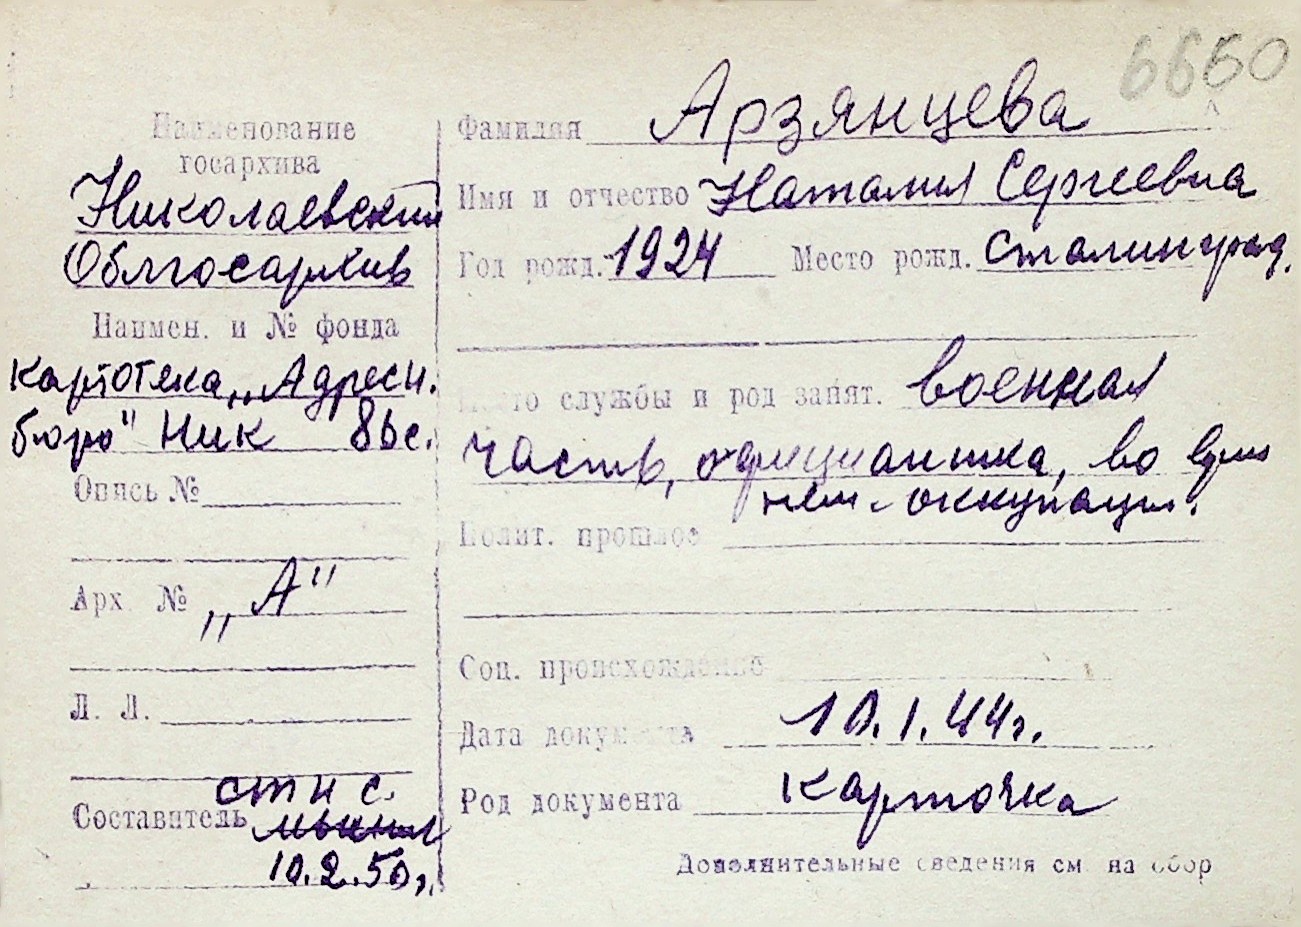 6650
Наименование
госархива
Николаевский
Облгосархив
Наимен. и № фонда
Картотека „Адресн.
бюро" Ник 8bс.
Опись №
Арх №
„А"
Л. Л.
Составитель
ст н с.
10.2.50г.
Фамилия Арзянцева
Имя и отчество Наталия Сергеевна
Год рожд. 1924 Место рожд. Сталинград.
Место службы и род занят. военная
часть, официантка, во врем
нем. оккупации.
Полит. прошлое
Соц. происхождение
Дата документа 10.1.44г.
Род документа карточка
Дополнительные сведения см на обор